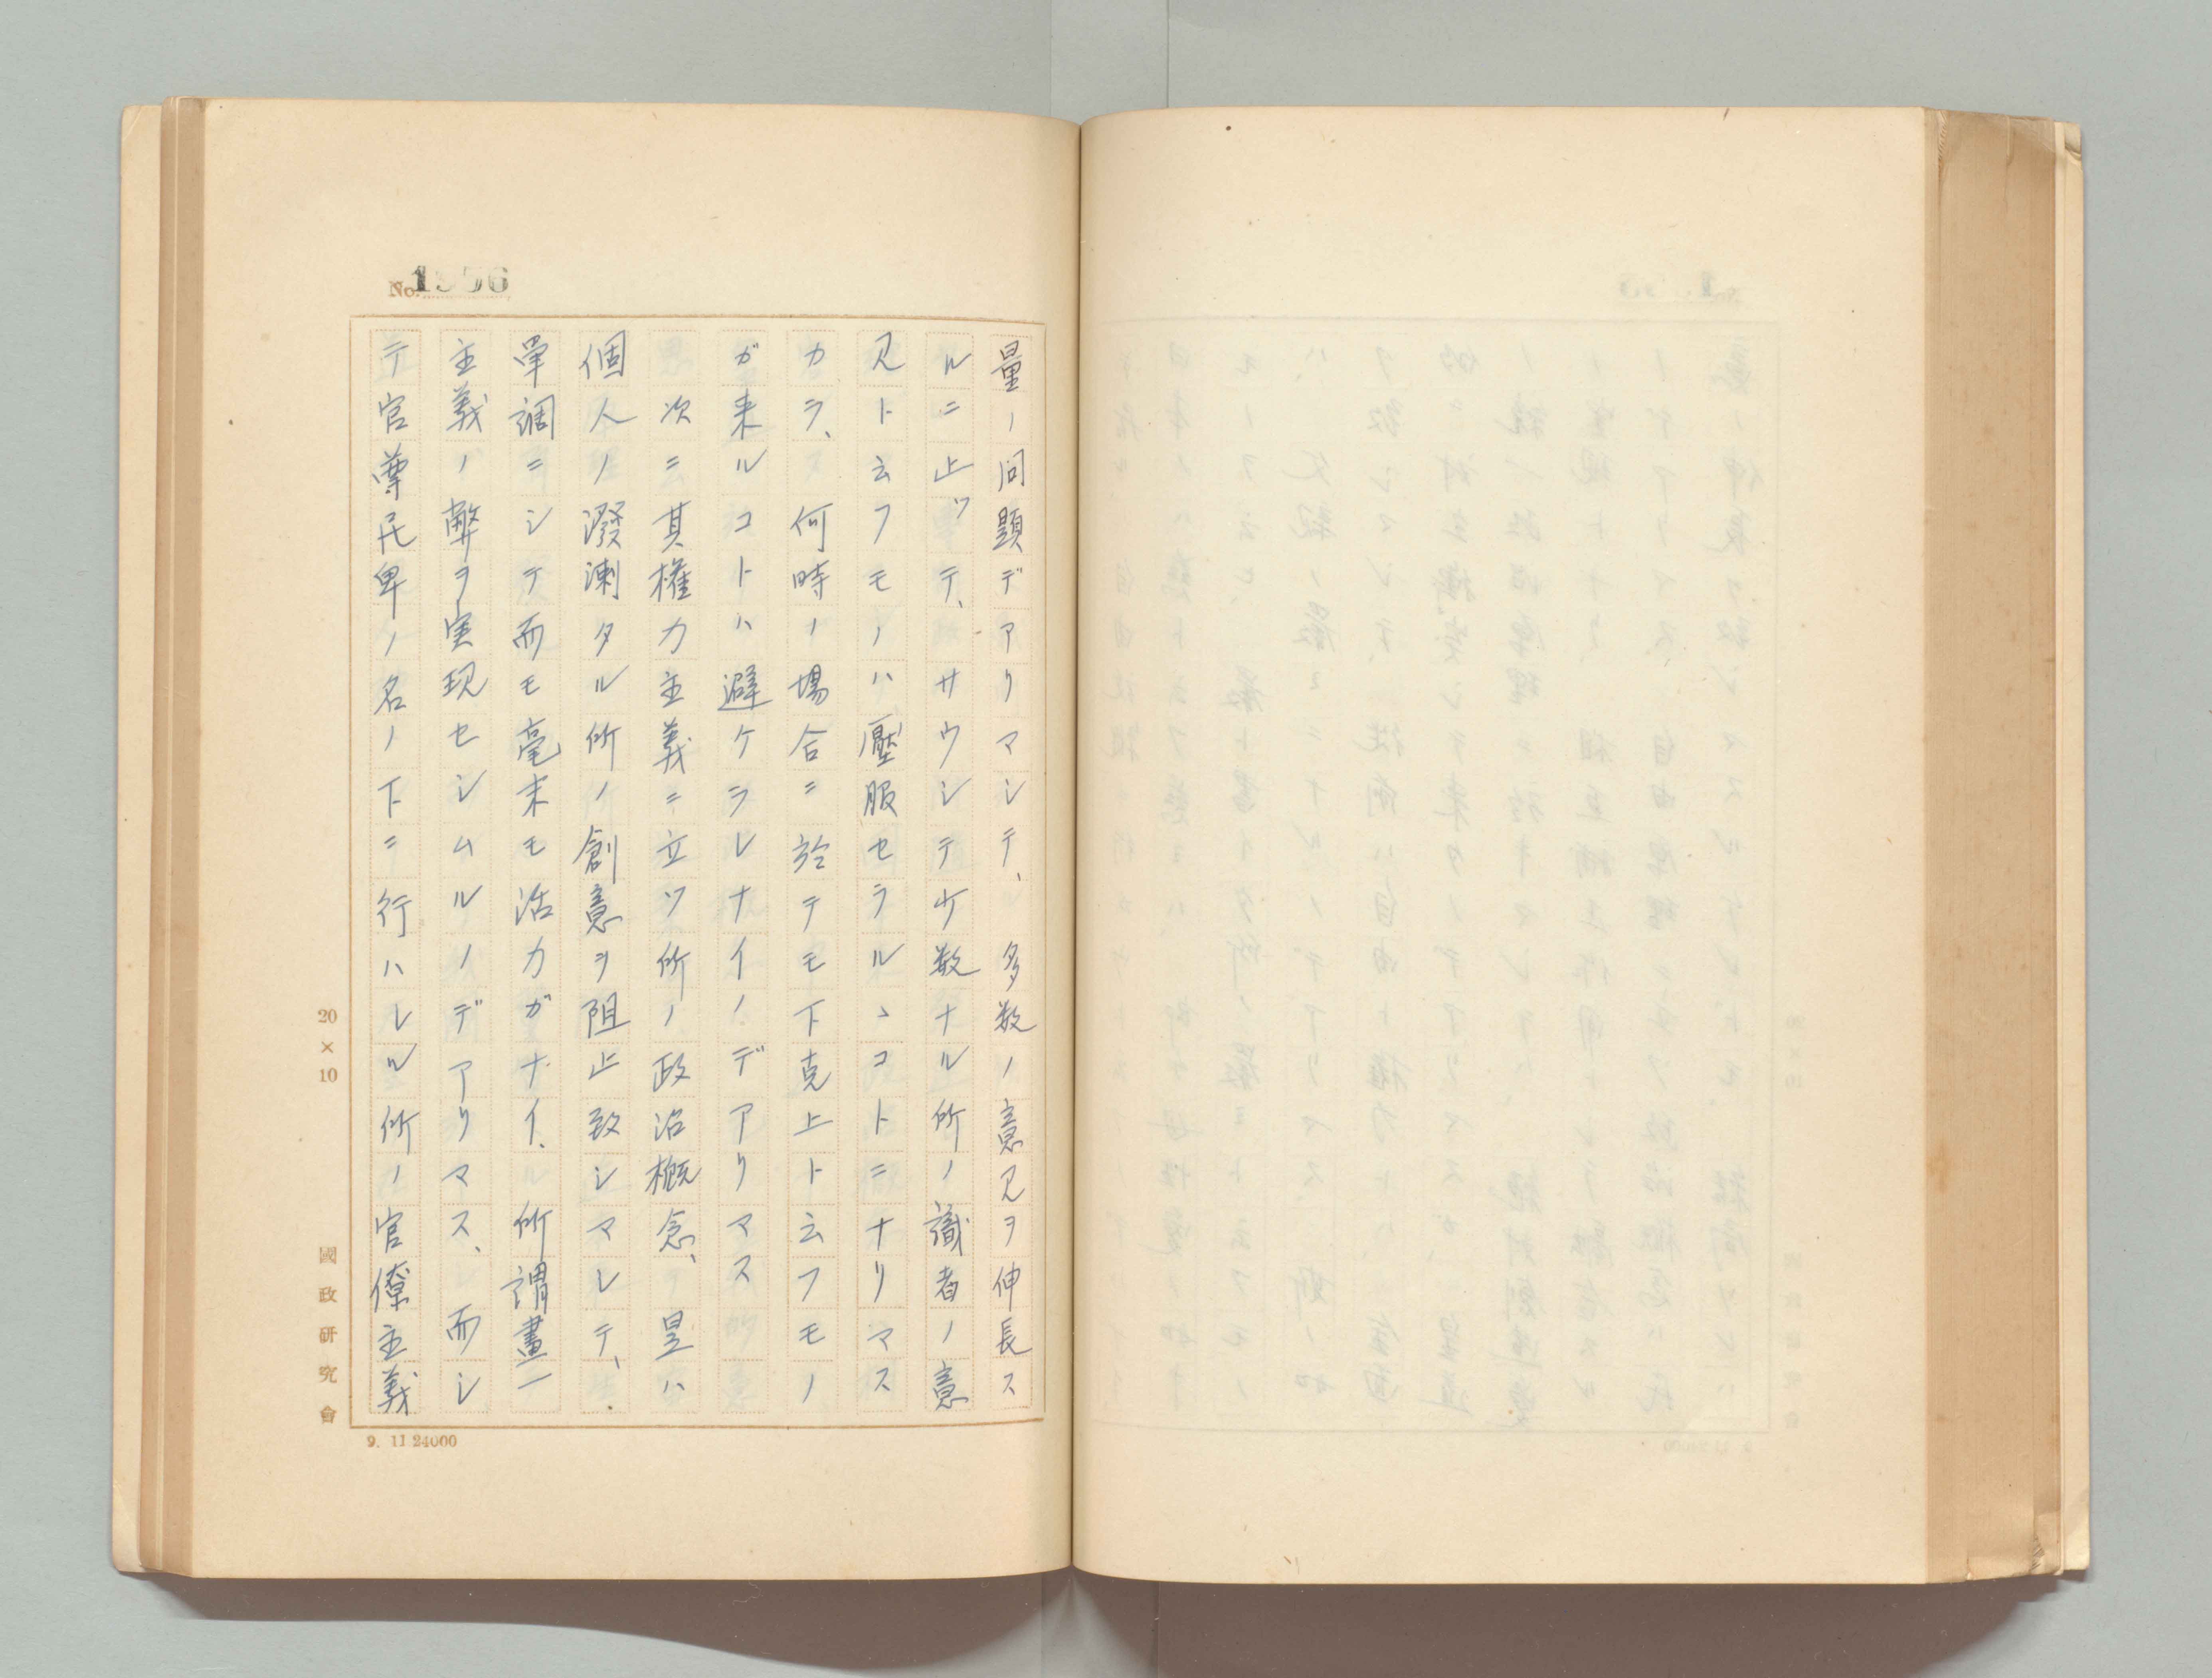 No. 1956
量ノ問題デアリマシテ、多数ノ意見ヲ伸長ス
ルニ止ツテ、サウシテ少数ナル所ノ識者ノ意
見ト云フモノハ壓服セラルヽコトニナリマス
カラ、何時ノ場合ニ於テモ下克上ト云フモノ
ガ来ルコトハ避ケラレナイノデアリマス
次ニ其権力主義ニ立ツ所ノ政治概念、是ハ
個人ノ潑溂タル所ノ創意ヲ阻止致シマシテ、
単調ニシテ而モ毫末モ活力ガナイ、所謂畫一
主義ノ弊ヲ実現セシムルノデアリマス、而シ
テ官尊民卑ノ名ノ下ニ行ハレル所ノ官僚主義
20×10
國政研究會
9. 11 24000